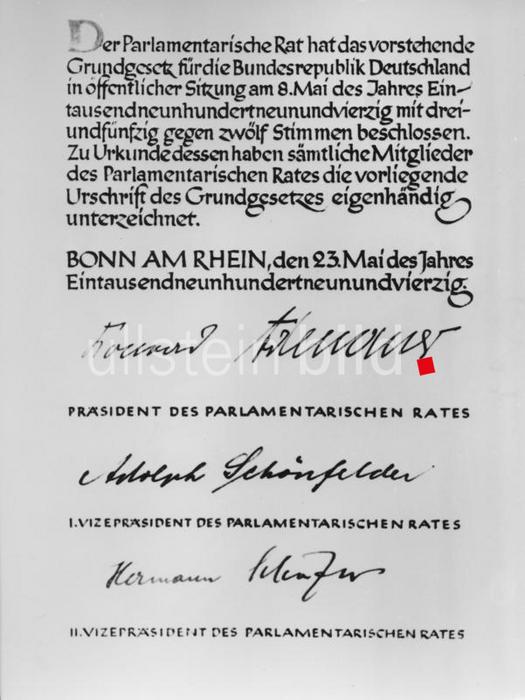 Der Parlamentarische Rat hat das vorstehende
Grundgesetz für die Bundesrepublik Deutschland
in öffentlicher Sitzung am 8. Mai des Jahres Ein-
tausendneunhundertneunundvierzig mit drei-
undfünfzig gegen zwölf Stimmen beschlossen.
Zu Urkunde dessen haben sämtliche Mitglieder
des Parlamentarischen Rates die vorliegende
Urschrift des Grundgesetzes eigenhändig
unterzeichnet.
BONN AM RHEIN, den 23. Mai des Jahres
Eintausendneunhundertneunundvierzig.
Konrad Adenauer
ullstein bild
PRÄSIDENT DES PARLAMENTARISCHEN RATES
Adolph Schönfelder
I. VIZEPRÄSIDENT DES PARLAMENTARISCHEN RATES
Hermann Schäfer
II. VIZEPRÄSIDENT DES PARLAMENTARISCHEN RATES